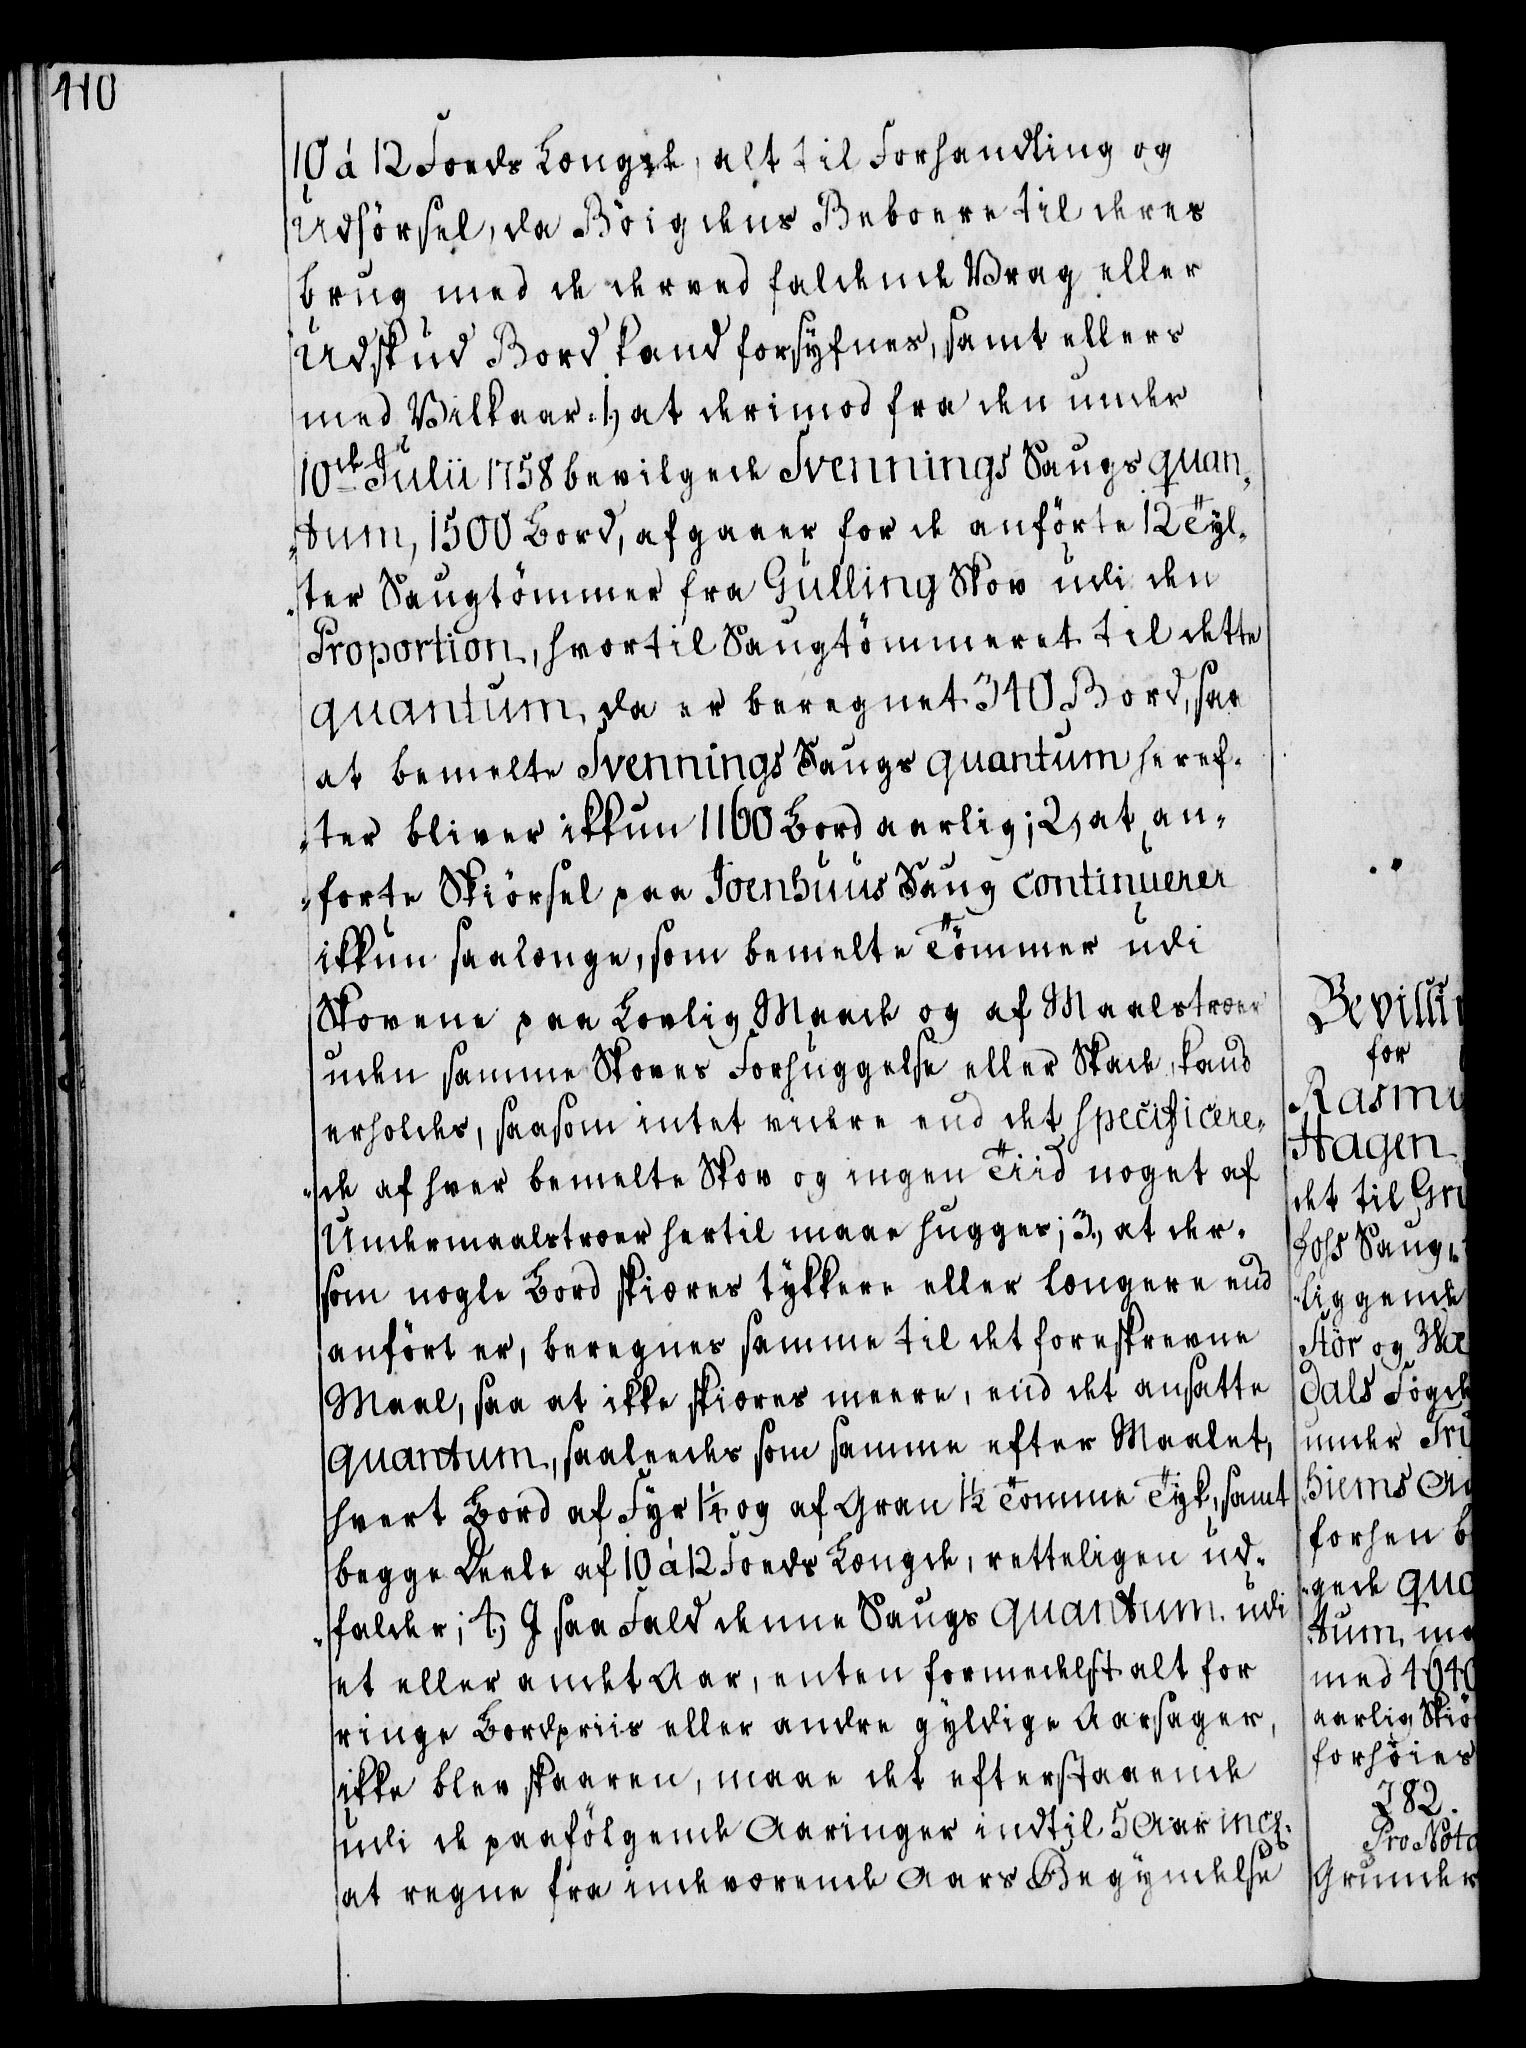 410
10 á 12 Foeds Længde, alt til Forhandling og
Udförsel, da Böigdens Beboere til deres
brug med de derved faldende Vrag eller
Udskud Bord kand forsÿfnes, samt ellers
med Vilkaar: 1, at derimod fra den under
10de Julii 1758 bevilgede Svennings Saugs quan„
„tum, 1500 Bord, afgaaer for de anförte 12 Tÿl„
„ter Saugtömmer fra Gulling Skov udi den
Proportion, hvortil Saugtömmeret til dette
quantum, da er beregnet 340 Bord, saa
at bemelte Svennings Saugs quantum heref„
„ter bliver ikkun 1160 Bord aarlig; 2, at an„
„forte Skiörsel paa Joenhuus Saug continuerer
ikkun saalænge, som bemelte Tömmer udi
Skovene paa Lovlig Maade og af Maalstræer
uden samme Skoves Forhuggelse eller Skade, kand
erholdes, saasom intet videre end det specificere„
„de af hver bemelte Skov og ingen Tiid noget af
Undermaalstræer hertil maae hugges; 3, at der„
som nogle Bord skiæres tÿkkere eller længere end
anfört er, beregnes samme til det foreskrevne
Maal, saa at ikke skiæres meere, end det ansatte
quantum, saaleedes som samme efter Maalet,
hvert Bord af Fyr 1¼ og af Gran 1½ Tomme Tÿk, samt
begge Deele af 10 á 12 Foeds Længde, retteligen ud„
„falder; 4, I saa Fald denne Saugs quantum udi
et eller andet Aar, enten formedelst alt for
ringe Bordpriis eller andre gyldige Aarsager,
ikke blev skaaren, maae det efterstaaende
udi de paafölgende Aaringer indtil 5 Aar incl.
at regne fra indeværende Aars Begÿndelse
Bevilli
for
Rasmu
Hagen
det til Gri
hofs Saug„
„liggende
Stör og
Dals Fogde
under Tri
hiems
forhen b
„gede qua
tum, ma
med
aarlig Skiö
forhöies
282.
Pro Nota
Grunder